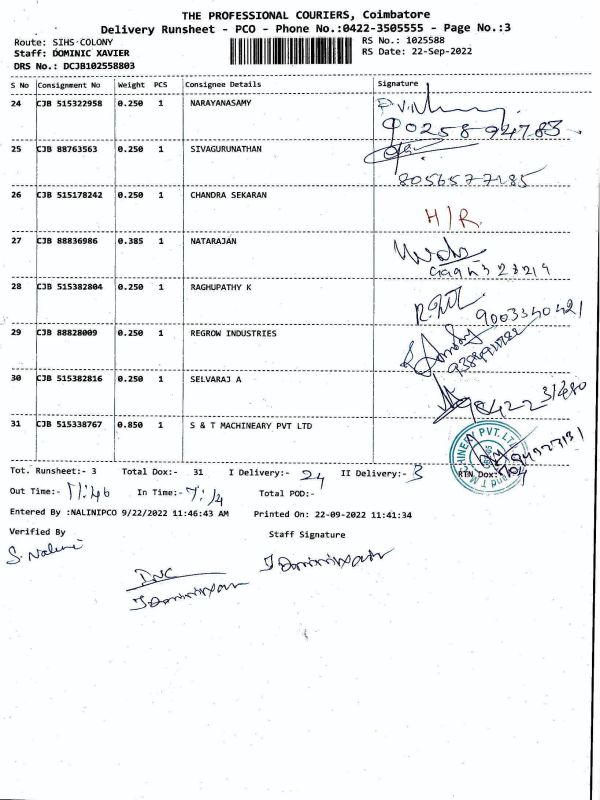 THE PROFESSIONAL COURIERS, Coimbatore
Delivery Runsheet - PCO - Phone No.:0422-3505555 - Page No.:3
Route: SIHS-COLONY RS No.: 1025588
Staff: DOMINIC XAVIER RS Date: 22-Sep-2022
DRS No.: DCJB102558803
S No Consignment No Weight PCS Consignee Details Signature
24 CJB 515322958 0.250 1 NARAYANASAMY
25 CJB 88763563 0.250 1 SIVAGURUNATHAN
26 CJB 515178242 0.250 1 CHANDRA SEKARAN H/R
27 CJB 88836986 0.385 1 NATARAJAN
28 CJB 515382804 0.250 1 RAGHUPATHY K
9003340421
29 CJB 88828009 0.250 1 REGROW INDUSTRIES
30 CJB 515382816 0.250 1 SELVARAJ A
31 CJB 515338767 0.850 1 S & T MACHINEARY PVT LTD
Tot. Runsheet:- 3 Total Dox:- 31 I Delivery:- 24 II Delivery:- 3 RTN Dox:-
Out Time:- 11:46 In Time:- 7:14 Total POD:-
Entered By :NALINIPCO 9/22/2022 11:46:43 AM Printed On: 22-09-2022 11:41:34
Verified By Staff Signature
S. Nalini